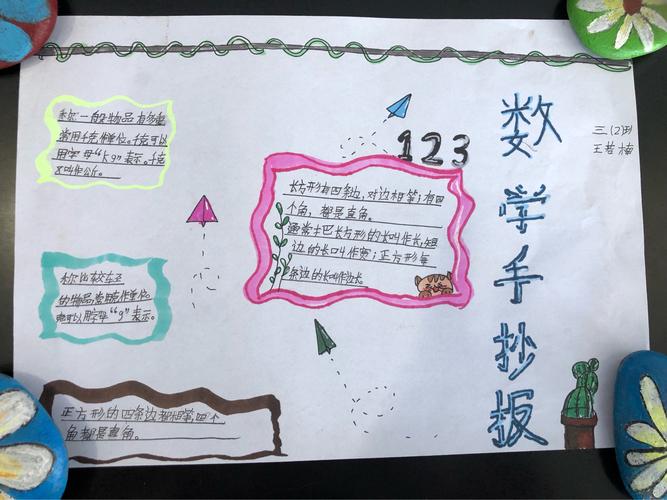 数学手抄板
三(2)班
王若楠
123
称一般物品有多重
常用千克作单位。千克可以
用字母“kg”表示。千克
又叫作公斤。
长方形有四条边,对边相等;有四
个角,都是直角。
通常把长方形的长叫作长,短
边的长叫作宽;正方形每
条边的长叫作边长
称比较轻
的物品常用克作单位。
克可以用字母“g”表示。
正方形的四条边都相等,四个
角都是直角。